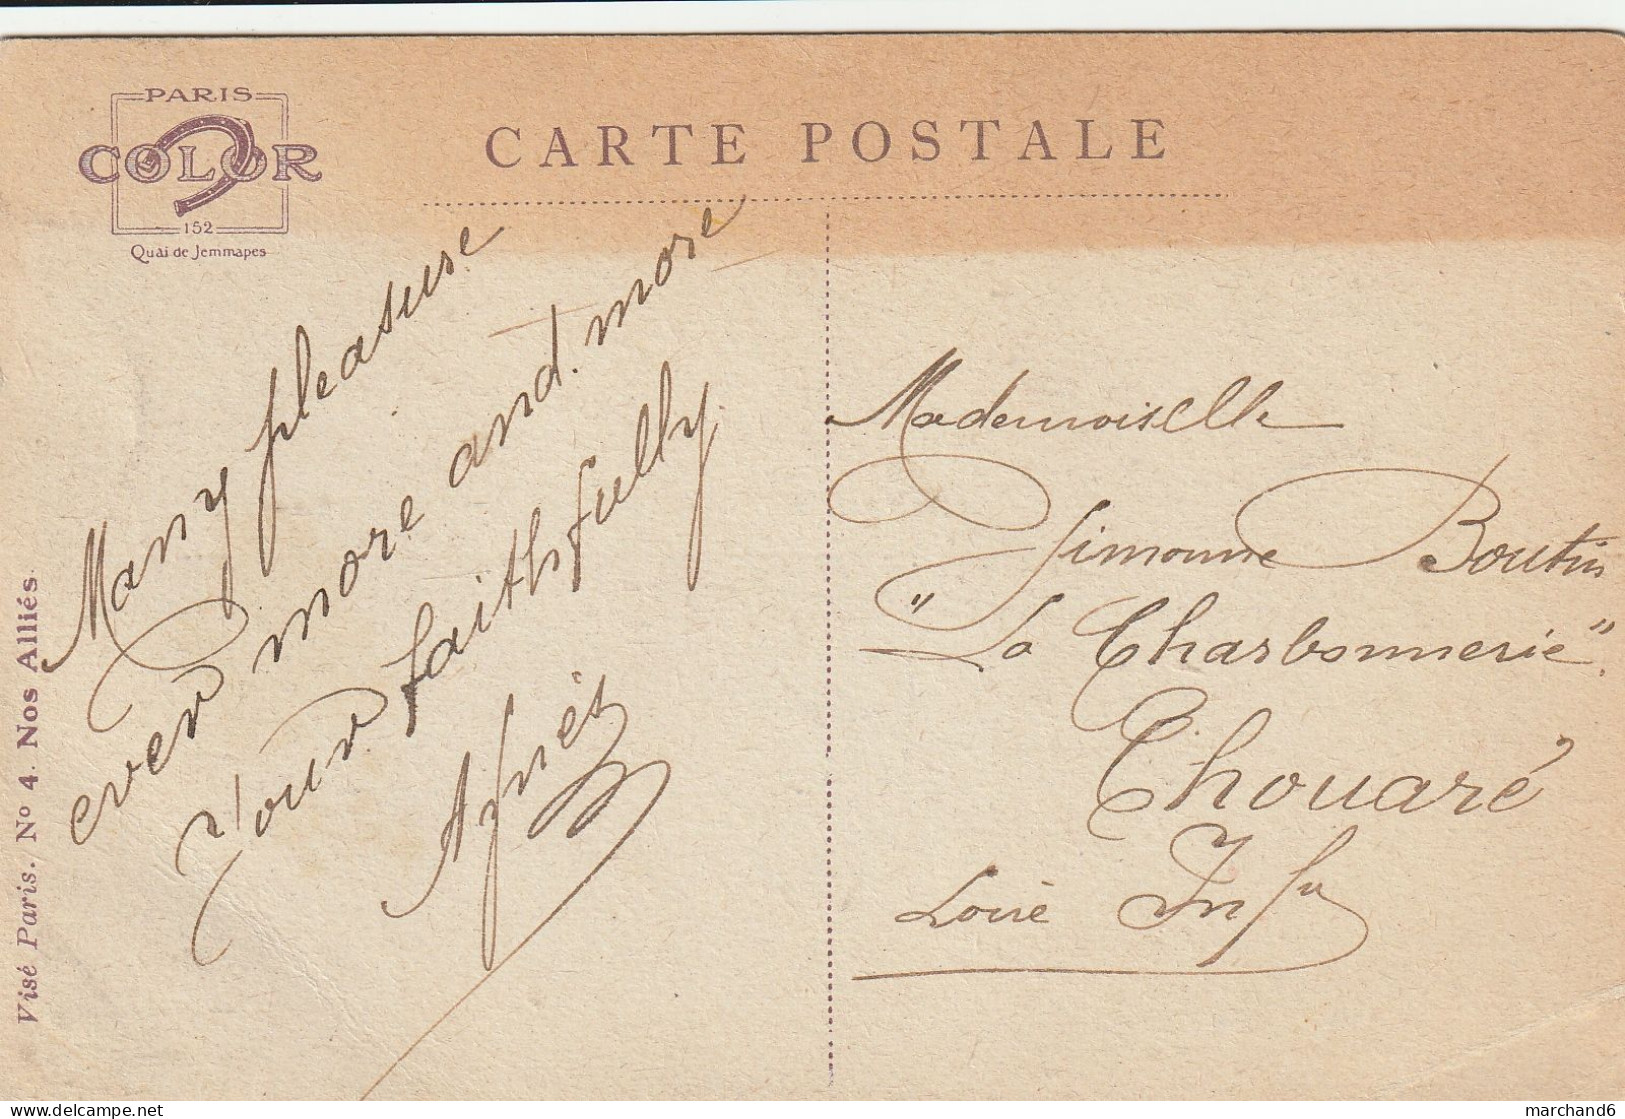 PARIS
COLOR
152
Quai de Jemmapes
CARTE POSTALE
Visé Paris. Nº 4. Nos Alliés
Many pleasure
ever more and. more
Your faithfully.
Agnès
Mademoiselle
Simonne Boutin
"La Charbonnerie".
Thouaré
Loire Infre
www.delcampe.net
marchand6